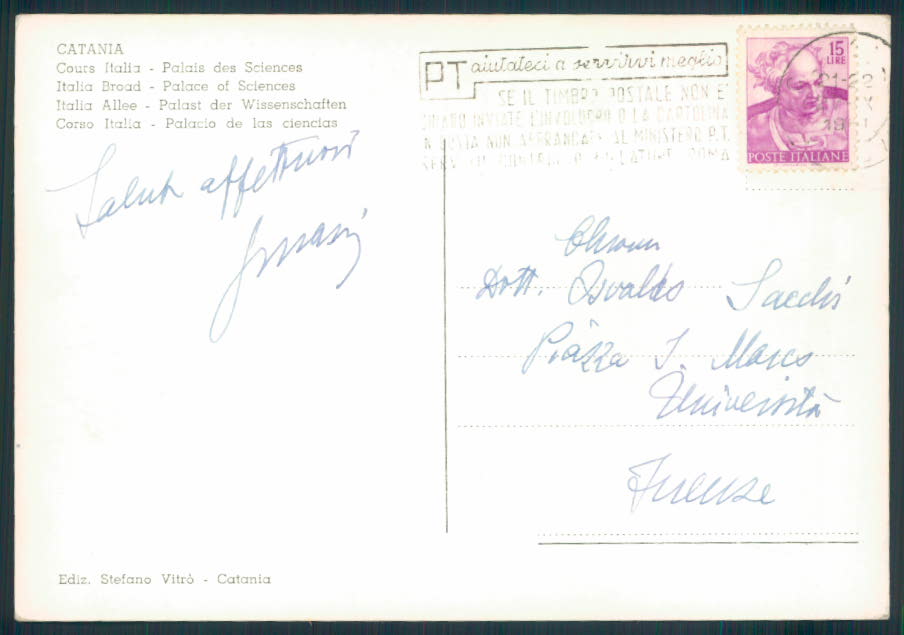 CATANIA
Cours Italia - Palais des Sciences
Italia Broad - Palace of Sciences
Italia Allee - Palast der Wissenschaften
Corso Italia - Palacio de las ciencias
Saluti affettuosi
PT aiutateci a servirvi meglio
SE IL TIMBRO POSTALE NON E'
CHIARO INVIATE L'INVOLUCRO O LA CARTOLINA
IN BUSTA NON AFFRANCATA AL MINISTERO P.T.
ROMA
15
LIRE
POSTE ITALIANE
21-22
Dott. Osvaldo Sacchi
Piazza S. Marco
Università
Firenze
Ediz. Stefano Vitrò - Catania